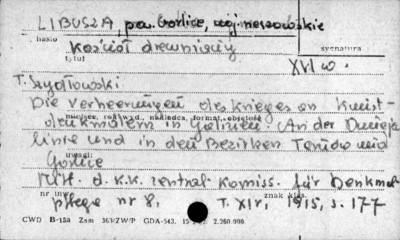 LIBUSZA, pow. Gorlice, woj. rzeszowskie
hasło
Kościół drewniany
sygnatura
tytuł
XVI w.
T. Szydłowski
Die Verheerungen des Krieges an Kunst-
miejsce, rok wyd., nakładca, format, objętość
denkmälern in Galizien. An der Dunajec
linie und in den Bezirken Tarnów und
uwagi:
Gorlice
Mitt. d. k.k. Zentral-Komiss. für Denkmal
nr inw.
znak klas.
pflege nr 8, T. XIV, 1915, s. 177
CWD B-15a Zam 363/ZW/P GDA-543. 2.260.000.